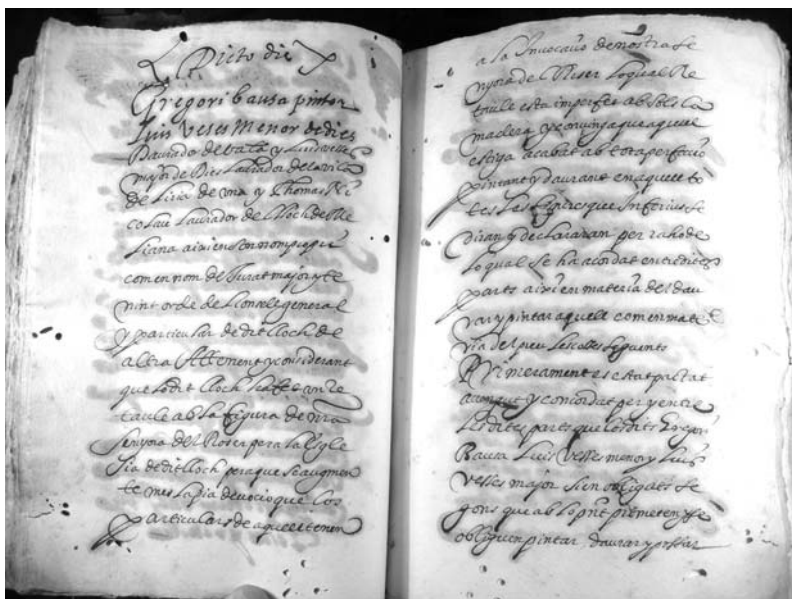 Dicto die
Gregori bausa pintor
Luis Veses Menor de dies
Daurador de Vala y Luis Veses
major de Dies Laurador dela vila
de Liria de una y Thomas Ni
colau Laurador del Lloch de Be
aixi en son nom propri
com en nom de Jurat major y te
nint orde de Consell general
y particular de dit lloch de
altra Attement y considerant
que lo dit lloch un re
taule ab la figura de nra
Senyora del Roser pera la Esgle
sia de dit lloch pera que se augmen
te mes la pia devocio que los
particulars de aquell tenen
a la Invocacio de nostra Se
nyora de Roser Lo qual Re
taule esta imperfet ab sols la
madera y convinga que aquell
estiga acabat ab tota perfeccio
pintant y daurant en aquell to
tes les que Inferius se
diran y declararan per raho de
lo qual se ha acordat entre dites
parts aixi en materia del dau
rar y pintar aquell com en mate
ria del preu les coses seguents
Primerament es estat pactat
avengut y concordat per y entre
les dites parts que los dits Gregori
Bausa Luis Vesses menor y Luis
Vesses major sien obligats se
gons que ab lo pnt prometen y se
obliguen pintar daurar y